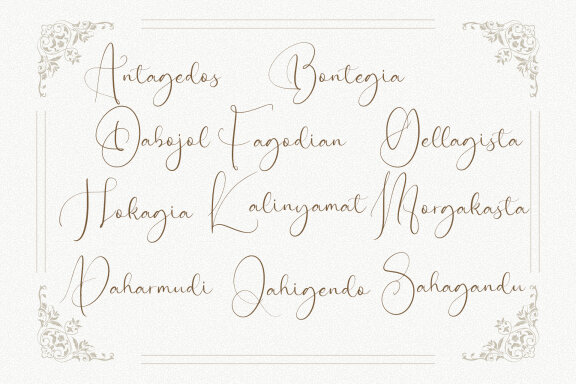 Antagedos Bontegia
Dabojol Fagodian Oellagista
Hokagia Kalinyamat Morgakasta
Paharmudi Qahigendo Sahagandu